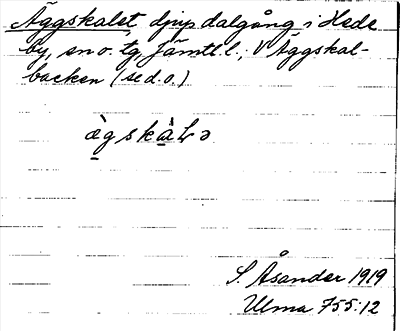 Äggskalet, djup dalgång i Hede
by, sn o. tg, Jämtl. l.; V Äggskal-
backen (se d. o.)
ägskàLə
S. Åsander 1919
Ulma 755:12